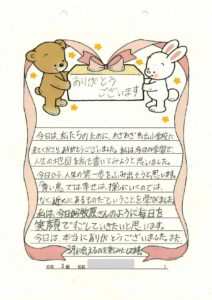 ありがとう
ございます
今日は、私たちのために、わざわざ 小学校に
きてくださり ありがとうございました。私は今日の学習で
人生の地図を私も書いてみようと思いました。
今日から 人生の第一歩をふみ出そうと思います。
「青い鳥」では幸せは、探しにいくのでは
なく 近くにあるものだということを学びました。
私は 今日 さんのように毎日を
笑顔ですごしていきたいと思います。
今日は、本当にありがとうございました。また
会えるのを楽しみにしてます。